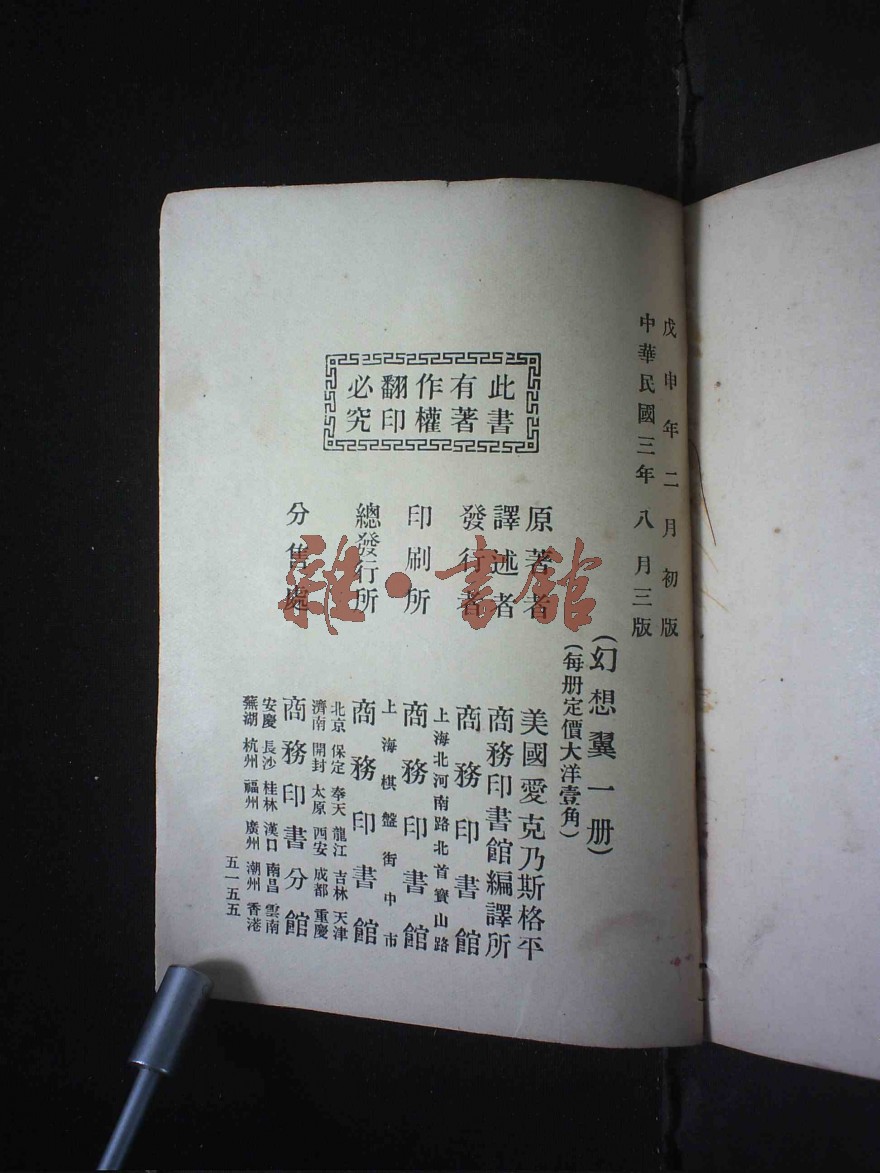 戊申年二月初版
中華民國三年八月三版
(幻想翼一册)
(每册定價大洋壹角)
此書有著作權翻印必究
原著者 美國愛克乃斯格平
譯述者 商務印書館編譯所
發行者 商務印書館
上海北河南路北首寶山路
印刷所 商務印書館
上海棋盤街中市
總發行所 商務印書館
北京 保定 奉天 龍江 吉林 天津
濟南 開封 太原 西安 成都 重慶
分售處 商務印書分館
安慶 長沙 桂林 漢口 南昌 雲南
蕪湖 杭州 福州 廣州 潮州 香港
五一五五
雜·書館